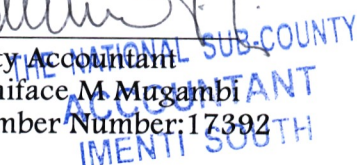 ty Accountant
niface M Mugambi
mber Number:17392
THE NATIONAL SUB-COUNTY
ACCOUNTANT
IMENTI SOUTH